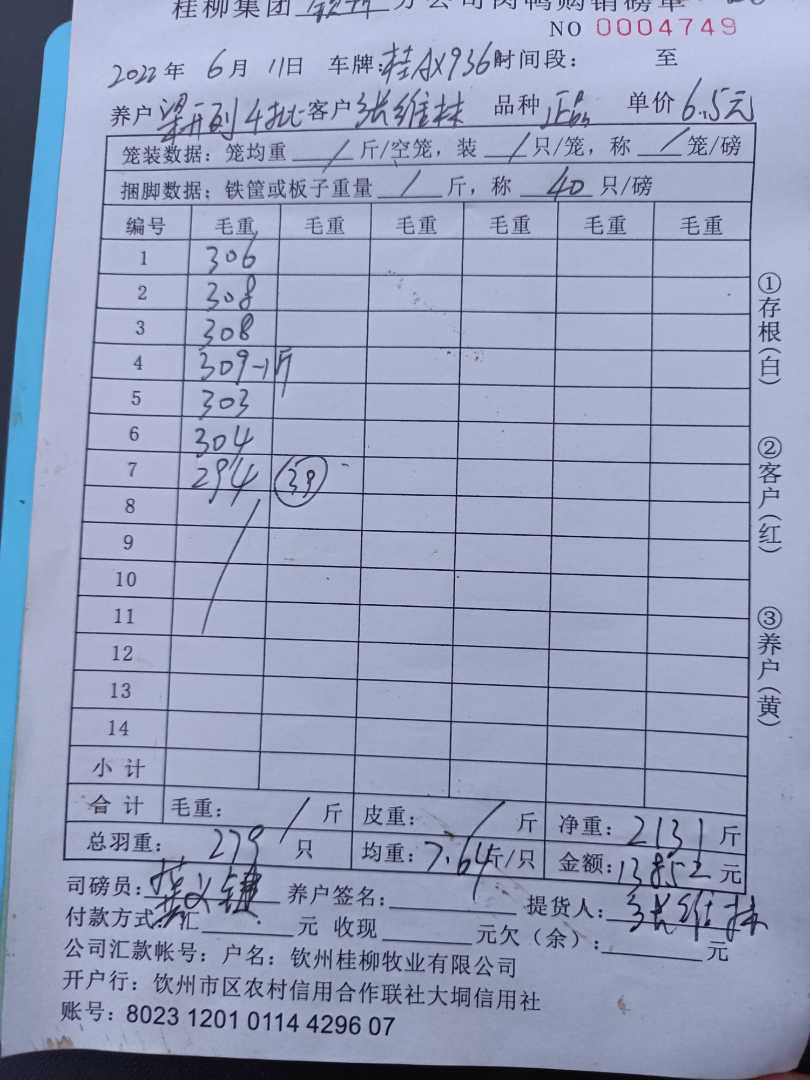 桂柳集团 钦州 分公司肉鸭购销磅单
NO 0004749
2022年 6月 11日 车牌:桂AX936 时间段: 至
养户 4批 客户 张维林 品种 正品 单价 6.5元
笼装数据：笼均重 / 斤/空笼，装 / 只/笼，称 / 笼/磅
捆脚数据：铁筐或板子重量 / 斤，称 40 只/磅
编号 毛重 毛重 毛重 毛重 毛重 毛重
1 306
2 308
3 308
4 309-1斤
5 303
6 304
7 294 39
8
9
10
11
12
13
14
小 计
合 计 毛重： / 斤 皮重： / 斤 净重：2131 斤
总羽重： 279 只 均重：7.64 斤/只 金额：13852 元
司磅员: 养户签名: 提货人: 张维林
付款方式: 汇 元 收现 元欠（余）: 元
公司汇款帐号：户名：钦州桂柳牧业有限公司
开户行：钦州市区农村信用合作联社大垌信用社
账号：8023 1201 0114 4296 07
①存根(白)
②客户(红)
③养户(黄)